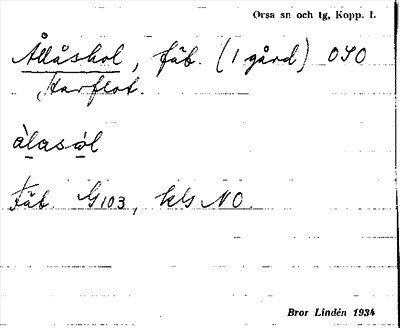 Orsa sn och tg, Kopp. l.
Ållåshol, fäb. (1 gård) OSO
Harflot.
àlasòl
Fäb. G103, kls NO.
Bror Lindén 1934